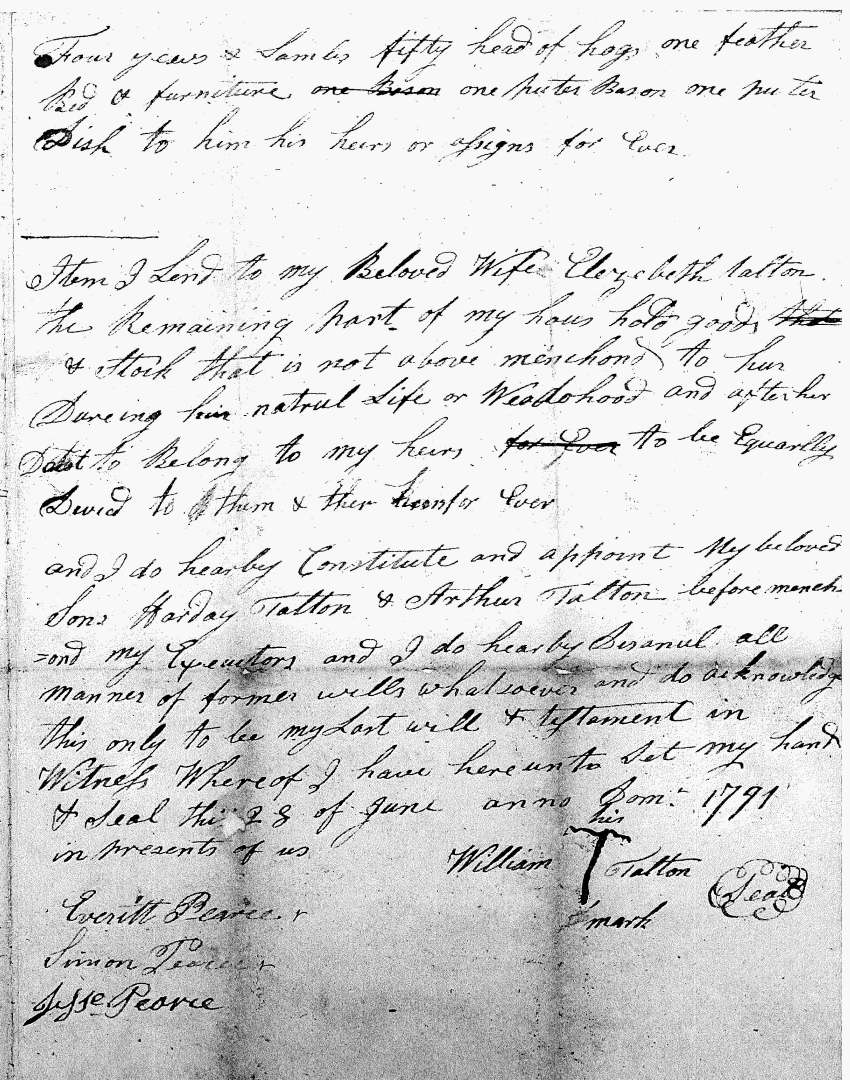 Four yews & Lambs fifty head of hogs one feather
Bed & furniture one Bason one puter Bason one puter
Dish to him his heirs or assigns for Ever
Item I Lend to my Beloved Wife Elezebeth talton
the Remaining part of my hous hold goods that
& Stock that is not above menchond to hur
Dureing hur natrul Life or Weadohood and after her
to Belong to my heirs for Ever to be Equarlly
Devied to them & ther for Ever
and I do hearby Constitute and appoint My beloved
Sons Harday Talton & Arthur Talton before mench
=ond my Executors and I do hearby Disanul all
manner of former wills whatsoever and do acknowledg
this only to be my Last will & testament in
Witness Whereof I have hereunto Set my hand
& Seal this 28 of June anno Dom: 1791
in presents of us
his
William T Talton Seal
mark
Everitt Pearce
Simon Pearce
Jesse Pearce